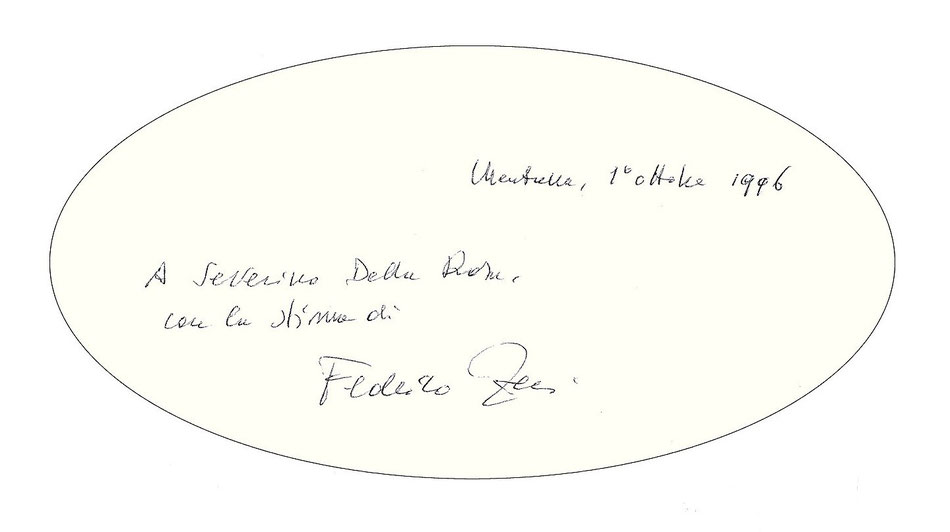 Mentana, 1° ottobre 1996
A Severino Della Rosa,
con la stima di
Federico Zeri